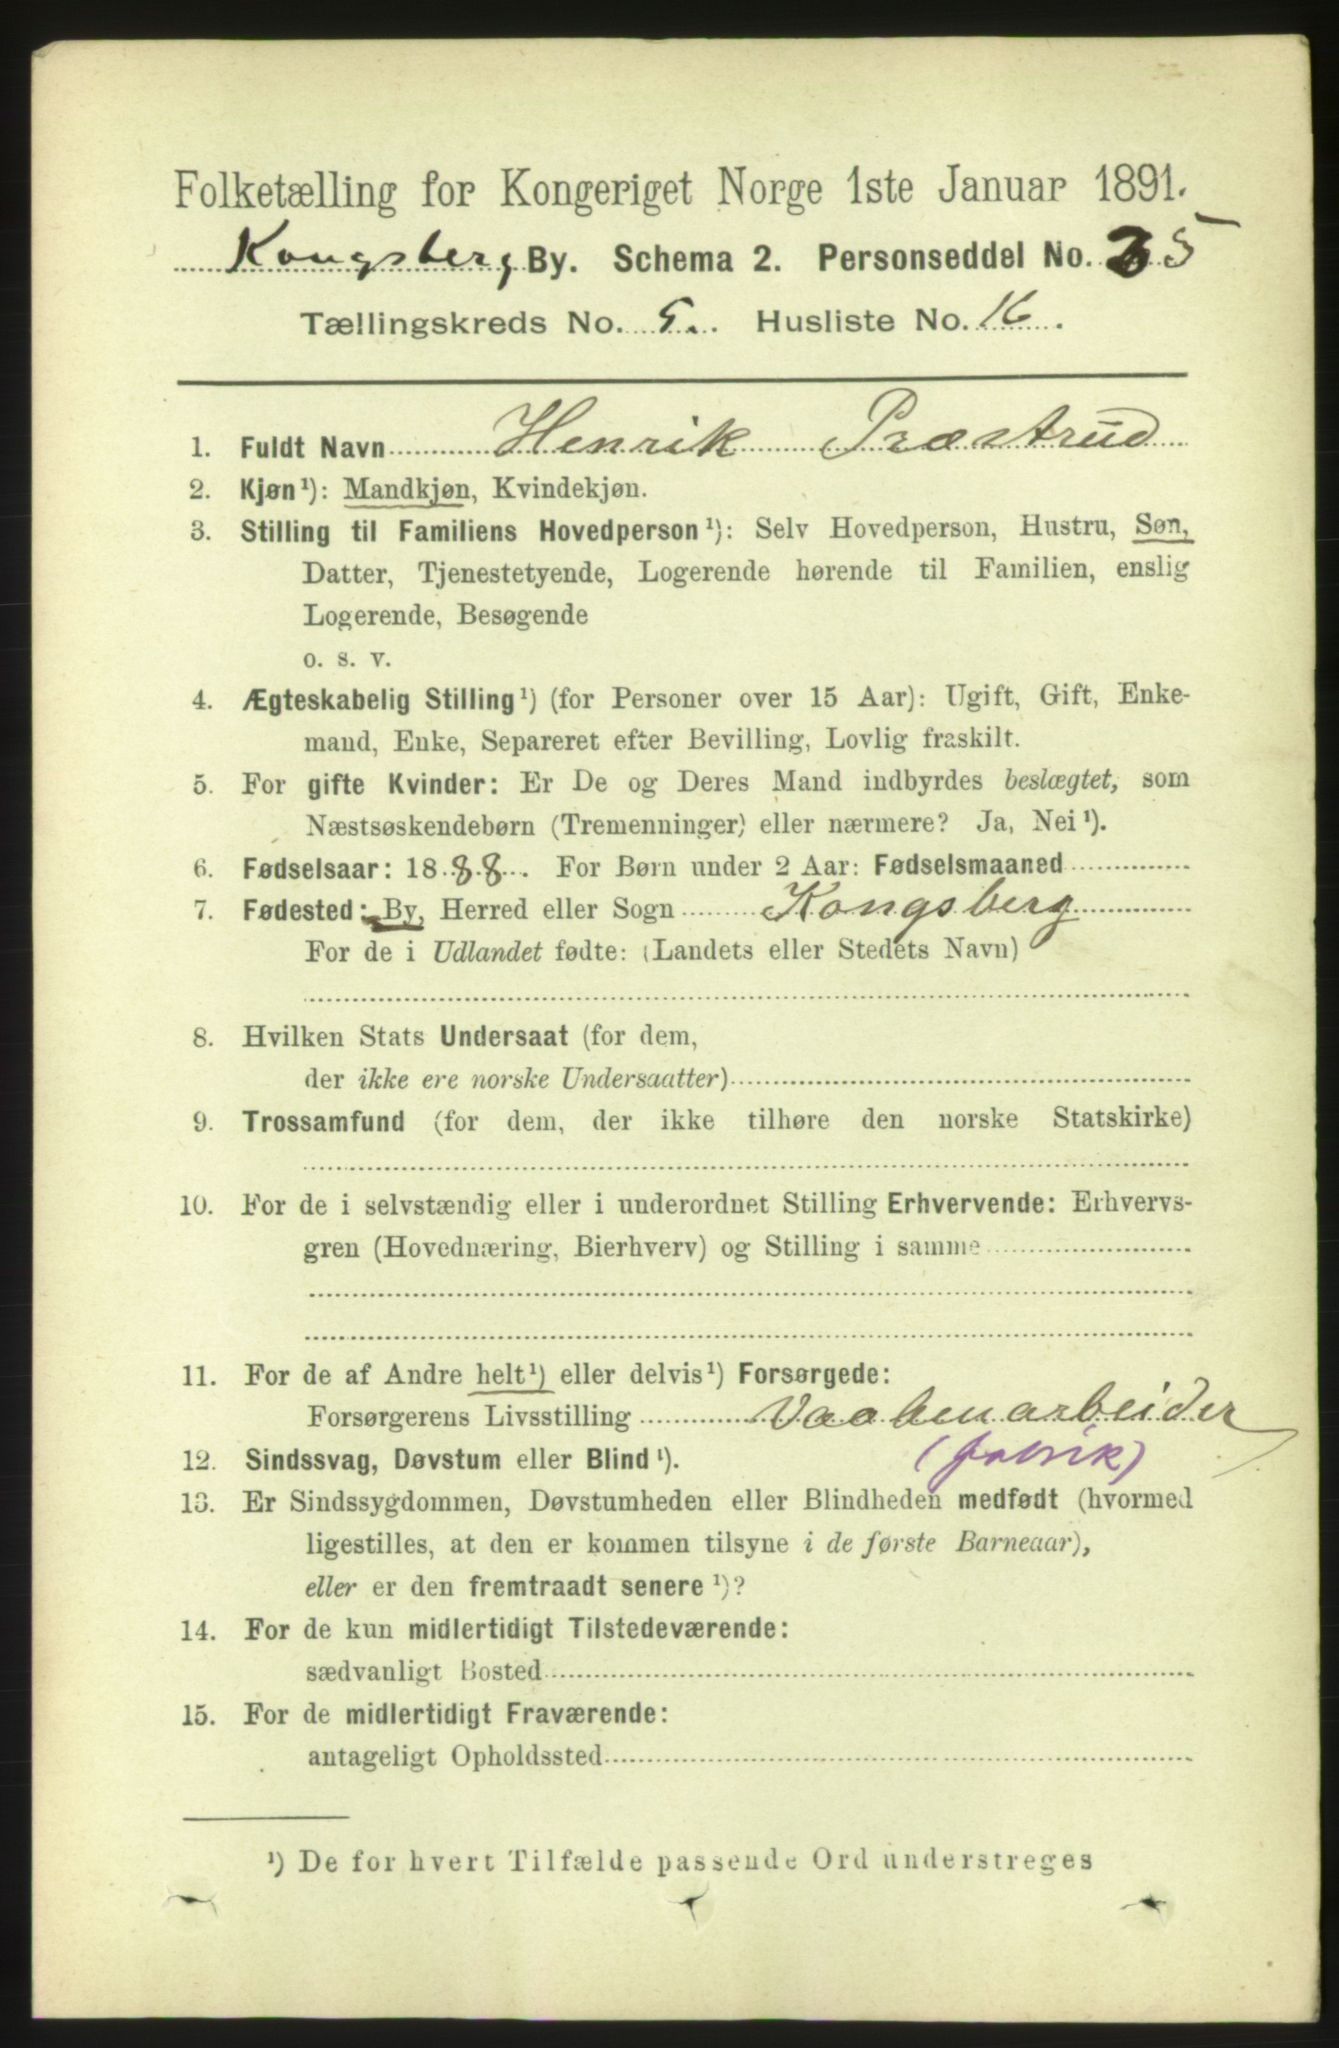 Folketælling for Kongeriget Norge 1ste Januar 1891.
Kongsberg By. Schema 2. Personseddel No. 35
Tællingskreds No. 5. Husliste No. 16.
1. Fuldt Navn Henrik Præstrud
2. Kjøn¹): Mandkjøn, Kvindekjøn.
3. Stilling til Familiens Hovedperson¹): Selv Hovedperson, Hustru, Søn,
Datter, Tjenestetyende, Logerende hørende til Familien, enslig
Logerende, Besøgende
o. s. v.
4. Ægteskabelig Stilling¹) (for Personer over 15 Aar): Ugift, Gift, Enke-
mand, Enke, Separeret efter Bevilling, Lovlig fraskilt.
5. For gifte Kvinder: Er De og Deres Mand indbyrdes beslægtet, som
Næstsøskendebørn (Tremenninger) eller nærmere? Ja, Nei¹).
6. Fødselsaar: 1888. For Børn under 2 Aar: Fødselsmaaned
7. Fødested: By, Herred eller Sogn Kongsberg
For de i Udlandet fødte: (Landets eller Stedets Navn)
8. Hvilken Stats Undersaat (for dem,
der ikke ere norske Undersaatter)
9. Trossamfund (for dem, der ikke tilhøre den norske Statskirke)
10. For de i selvstændig eller i underordnet Stilling Erhvervende: Erhvervs-
gren (Hovednæring, Bierhverv) og Stilling i samme
11. For de af Andre helt¹) eller delvis¹) Forsørgede:
Forsørgerens Livsstilling Vaabenarbeider
(fabrik)
12. Sindssvag, Døvstum eller Blind¹).
13. Er Sindssygdommen, Døvstumheden eller Blindheden medfødt (hvormed
ligestilles, at den er kommen tilsyne i de første Barneaar),
eller er den fremtraadt senere¹)?
14. For de kun midlertidigt Tilstedeværende:
sædvanligt Bosted
15. For de midlertidigt Fraværende:
antageligt Opholdssted
¹) De for hvert Tilfælde passende Ord understreges